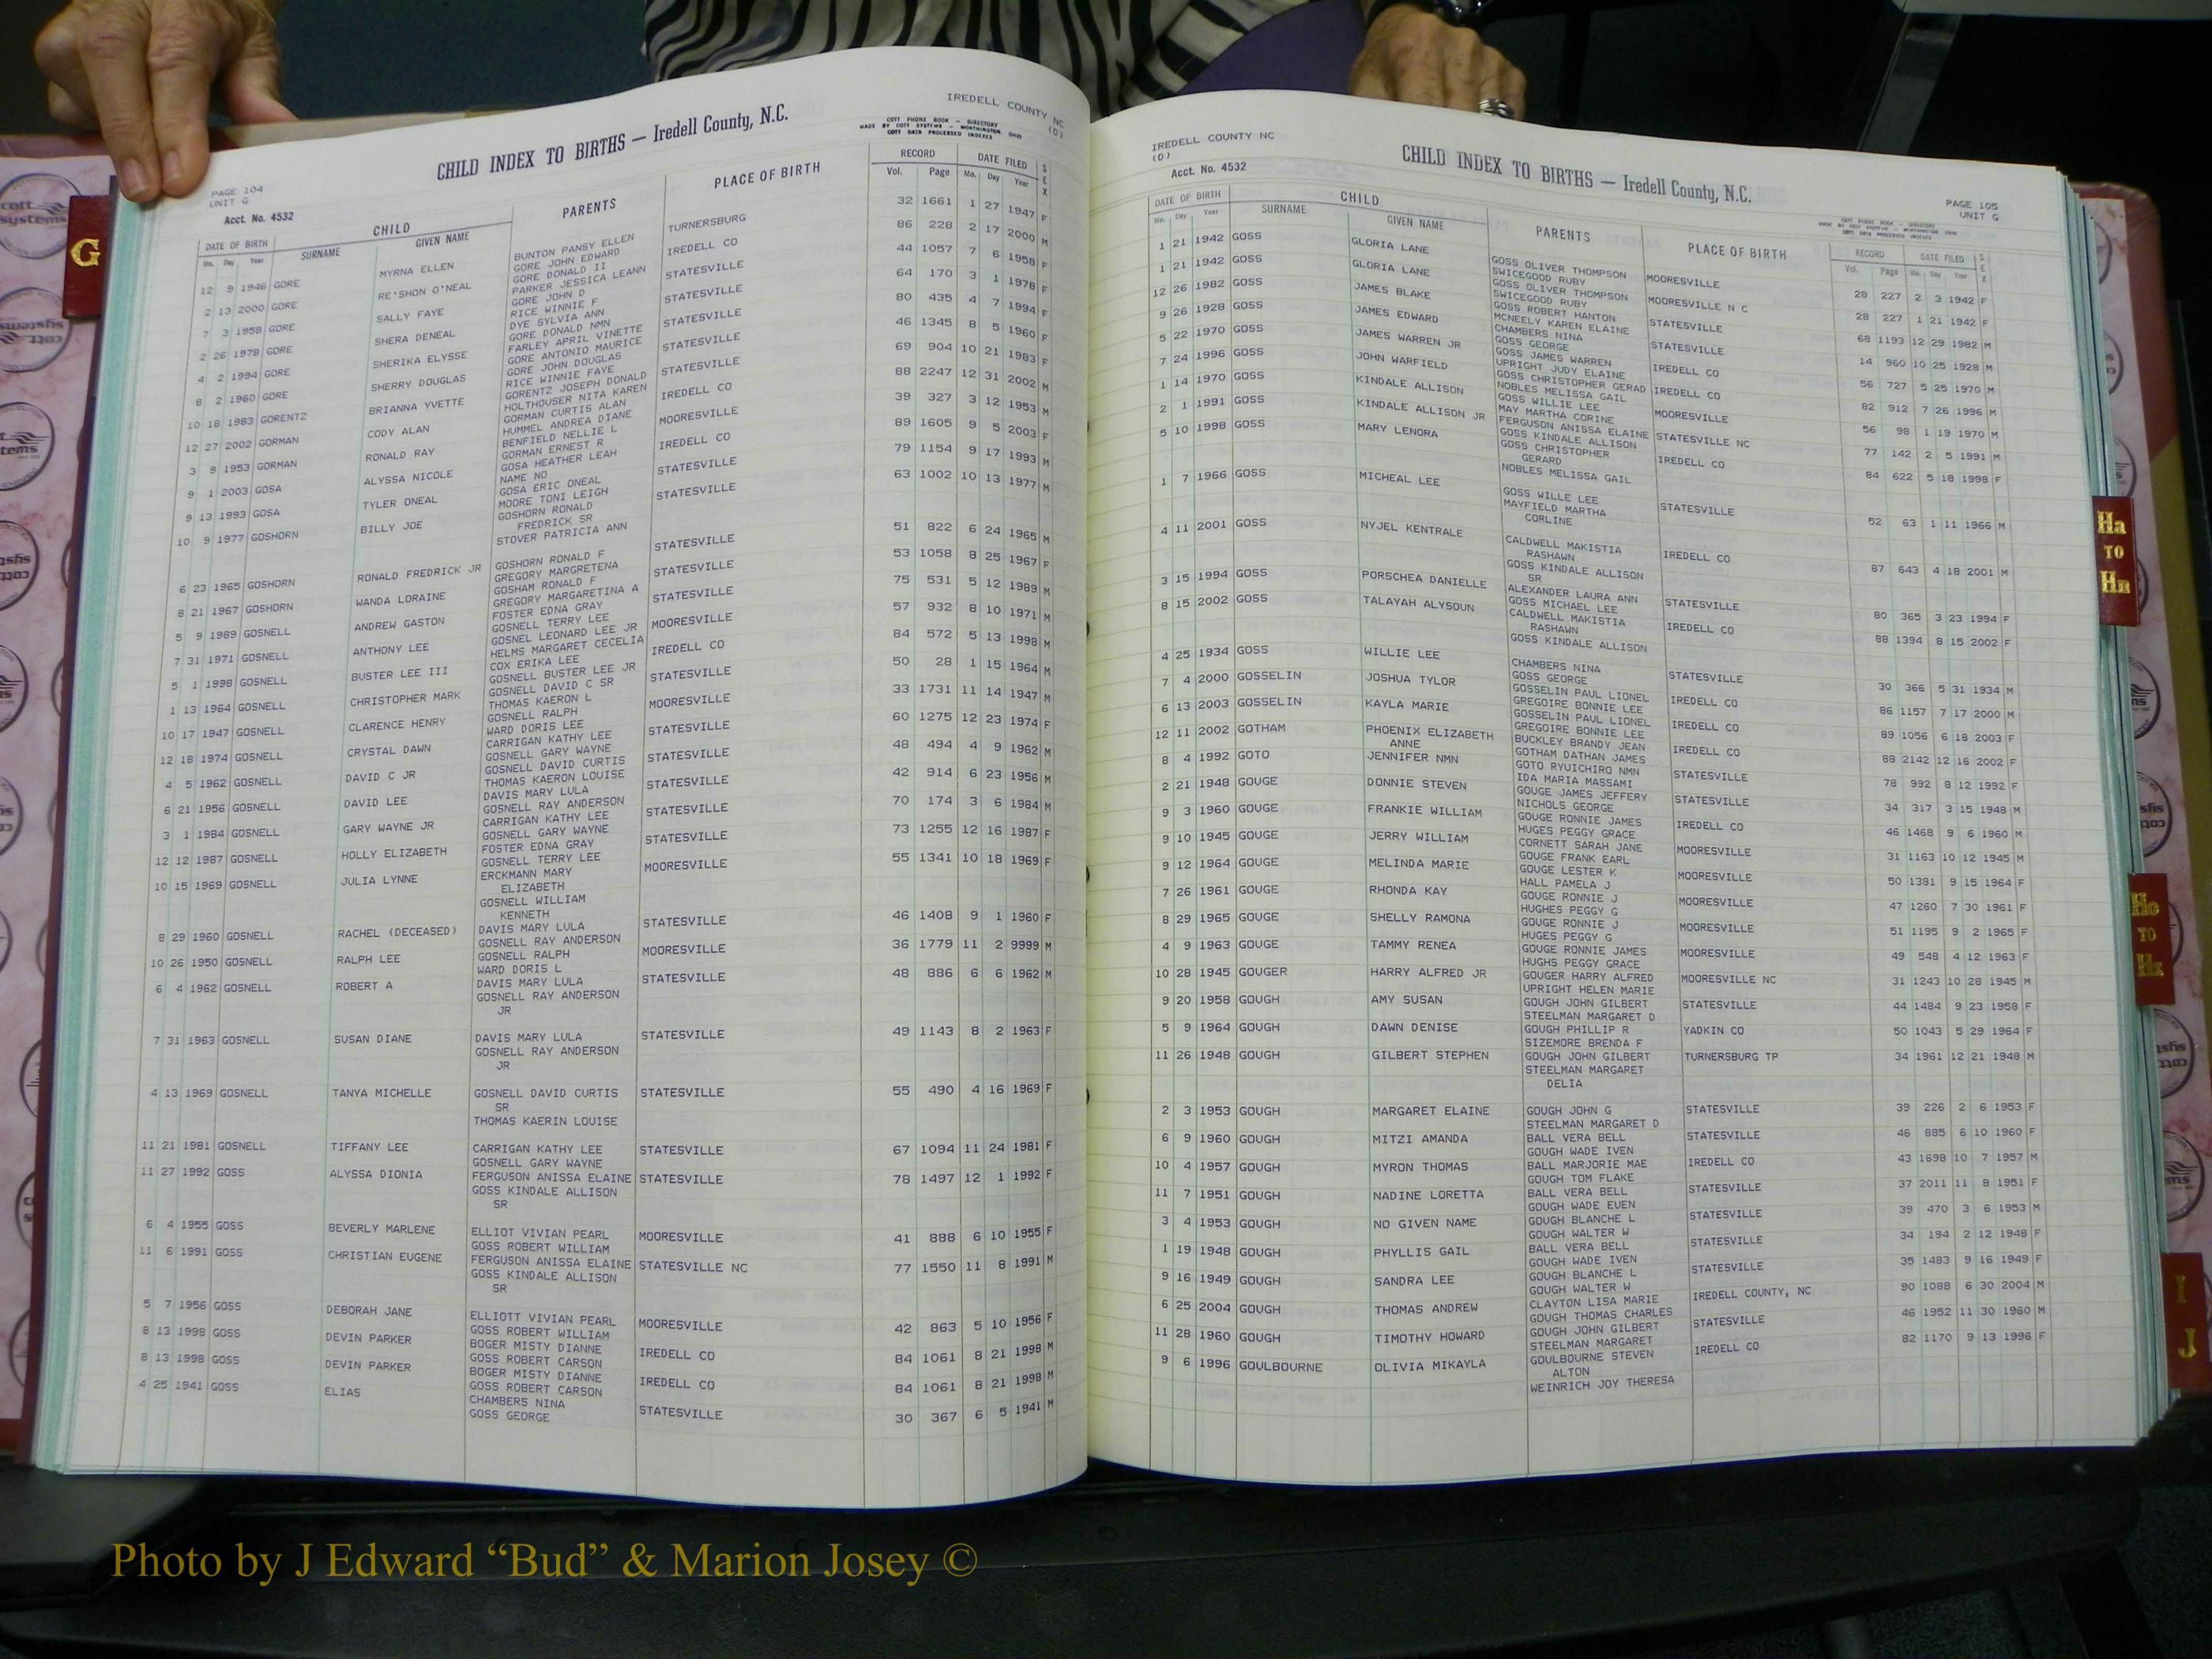 IREDELL COUNTY NC
(D)
CHILD INDEX TO BIRTHS — Iredell County, N.C.
COTT PHONE BOOK - DIRECTORY
MADE BY COTT SYSTEMS - WORTHINGTON, OHIO
COTT DATA PROCESSED INDEXES
PAGE 104
UNIT G
Acct. No. 4532
DATE OF BIRTH CHILD PARENTS PLACE OF BIRTH RECORD DATE FILED SEX
Mo. Day Year SURNAME GIVEN NAME Vol. Page Mo. Day Year
12 9 1946 GORE MYRNA ELLEN BUNTON PANSY ELLEN TURNERSBURG 32 1661 1 27 1947 F
GORE JOHN EDWARD
2 13 2000 GORE RE'SHON O'NEAL GORE DONALD II IREDELL CO 86 228 2 17 2000 M
PARKER JESSICA LEANN
7 3 1958 GORE SALLY FAYE GORE JOHN D STATESVILLE 44 1057 7 6 1958 F
RICE WINNIE F
2 26 1978 GORE SHERA DENEAL DYE SYLVIA ANN STATESVILLE 64 170 3 1 1978 F
GORE DONALD NMN
4 2 1994 GORE SHERIKA ELYSSE FARLEY APRIL VINETTE STATESVILLE 80 435 4 7 1994 F
GORE ANTONIO MAURICE
8 2 1960 GORE SHERRY DOUGLAS GORE JOHN DOUGLAS STATESVILLE 46 1345 8 5 1960 F
RICE WINNIE FAYE
10 18 1983 GORENTZ BRIANNA YVETTE GORENTZ JOSEPH DONALD STATESVILLE 69 904 10 21 1983 F
HOLTHOUSER NITA KAREN
12 27 2002 GORMAN CODY ALAN GORMAN CURTIS ALAN IREDELL CO 88 2247 12 31 2002 M
HUMMEL ANDREA DIANE
3 9 1953 GORMAN RONALD RAY BENFIELD NELLIE L MOORESVILLE 39 327 3 12 1953 M
GORMAN ERNEST R
9 1 2003 GOSA ALYSSA NICOLE GOSA HEATHER LEAH IREDELL CO 89 1605 9 5 2003 F
NAME NO
9 13 1993 GOSA TYLER ONEAL GOSA ERIC ONEAL STATESVILLE 79 1154 9 17 1993 M
MOORE TONI LEIGH
10 9 1977 GOSHORN BILLY JOE GOSHORN RONALD STATESVILLE 63 1002 10 13 1977 M
FREDRICK SR
STOVER PATRICIA ANN
6 23 1965 GOSHORN RONALD FREDRICK JR GOSHORN RONALD F STATESVILLE 51 822 6 24 1965 M
GREGORY MARGRETENA
8 21 1967 GOSHORN WANDA LORAINE GOSHAM RONALD F STATESVILLE 53 1058 8 25 1967 F
GREGORY MARGRETINA A
5 9 1989 GOSNELL ANDREW GASTON FOSTER EDNA GRAY STATESVILLE 75 531 5 12 1989 M
GOSNELL TERRY LEE
7 31 1971 GOSNELL ANTHONY LEE GOSNEL LEONARD LEE JR MOORESVILLE 57 932 8 10 1971 M
HELMS MARGARET CECELIA
5 1 1998 GOSNELL BUSTER LEE III COX ERIKA LEE IREDELL CO 84 572 5 13 1998 M
GOSNELL BUSTER LEE JR
1 13 1964 GOSNELL CHRISTOPHER MARK GOSNELL DAVID C SR STATESVILLE 50 28 1 15 1964 M
THOMAS KAERON L
10 17 1947 GOSNELL CLARENCE HENRY GOSNELL RALPH MOORESVILLE 33 1731 11 14 1947 M
WARD DORIS LEE
12 18 1974 GOSNELL CRYSTAL DAWN CARRIGAN KATHY LEE STATESVILLE 60 1275 12 23 1974 F
GOSNELL GARY WAYNE
4 5 1962 GOSNELL DAVID C JR GOSNELL DAVID CURTIS STATESVILLE 48 494 4 9 1962 M
THOMAS KAERON LOUISE
6 21 1956 GOSNELL DAVID LEE DAVIS MARY LULA STATESVILLE 42 914 6 23 1956 M
GOSNELL RAY ANDERSON
3 1 1984 GOSNELL GARY WAYNE JR CARRIGAN KATHY LEE STATESVILLE 70 174 3 6 1984 M
GOSNELL GARY WAYNE
12 12 1987 GOSNELL HOLLY ELIZABETH FOSTER EDNA GRAY STATESVILLE 73 1255 12 16 1987 F
GOSNELL TERRY LEE
10 15 1969 GOSNELL JULIA LYNNE ERCKMANN MARY MOORESVILLE 55 1341 10 18 1969 F
ELIZABETH
GOSNELL WILLIAM
KENNETH
8 29 1960 GOSNELL RACHEL (DECEASED) DAVIS MARY LULA STATESVILLE 46 1408 9 1 1960 F
GOSNELL RAY ANDERSON
10 26 1950 GOSNELL RALPH LEE GOSNELL RALPH MOORESVILLE 36 1779 11 2 9999 M
WARD DORIS L
6 4 1962 GOSNELL ROBERT A DAVIS MARY LULA STATESVILLE 48 886 6 6 1962 M
GOSNELL RAY ANDERSON
JR
7 31 1963 GOSNELL SUSAN DIANE DAVIS MARY LULA STATESVILLE 49 1143 8 2 1963 F
GOSNELL RAY ANDERSON
JR
4 13 1969 GOSNELL TANYA MICHELLE GOSNELL DAVID CURTIS STATESVILLE 55 490 4 16 1969 F
SR
THOMAS KAERIN LOUISE
11 21 1981 GOSNELL TIFFANY LEE CARRIGAN KATHY LEE STATESVILLE 67 1094 11 24 1981 F
GOSNELL GARY WAYNE
11 27 1992 GOSS ALYSSA DIONIA FERGUSON ANISSA ELAINE STATESVILLE 78 1497 12 1 1992 F
GOSS KINDALE ALLISON
SR
6 4 1955 GOSS BEVERLY MARLENE ELLIOT VIVIAN PEARL MOORESVILLE 41 888 6 10 1955 F
GOSS ROBERT WILLIAM
11 6 1991 GOSS CHRISTIAN EUGENE FERGUSON ANISSA ELAINE STATESVILLE NC 77 1550 11 8 1991 M
GOSS KINDALE ALLISON
SR
5 7 1956 GOSS DEBORAH JANE ELLIOTT VIVIAN PEARL MOORESVILLE 42 863 5 10 1956 F
GOSS ROBERT WILLIAM
8 13 1998 GOSS DEVIN PARKER BOGER MISTY DIANNE IREDELL CO 84 1061 8 21 1998 M
GOSS ROBERT CARSON
8 13 1998 GOSS DEVIN PARKER BOGER MISTY DIANNE IREDELL CO 84 1061 8 21 1998 M
GOSS ROBERT CARSON
4 25 1941 GOSS ELIAS CHAMBERS NINA STATESVILLE 30 367 6 5 1941 M
GOSS GEORGE
IREDELL COUNTY NC
(D)
Acct. No. 4532
CHILD INDEX TO BIRTHS — Iredell County, N.C.
PAGE 105
UNIT G
COTT PHONE BOOK - DIRECTORY
MADE BY COTT SYSTEMS - WORTHINGTON, OHIO
COTT DATA PROCESSED INDEXES
DATE OF BIRTH CHILD PARENTS PLACE OF BIRTH RECORD DATE FILED SEX
Mo. Day Year SURNAME GIVEN NAME Vol. Page Mo. Day Year
1 21 1942 GOSS GLORIA LANE GOSS OLIVER THOMPSON MOORESVILLE 28 227 2 3 1942 F
SWICEGOOD RUBY
1 21 1942 GOSS GLORIA LANE GOSS OLIVER THOMPSON MOORESVILLE N C 28 227 1 21 1942 F
SWICEGOOD RUBY
12 26 1982 GOSS JAMES BLAKE GOSS ROBERT HANTON STATESVILLE 68 1193 12 29 1982 M
MCNEELY KAREN ELAINE
9 26 1928 GOSS JAMES EDWARD CHAMBERS NINA STATESVILLE 14 960 10 25 1928 M
GOSS GEORGE
5 22 1970 GOSS JAMES WARREN JR GOSS JAMES WARREN IREDELL CO 56 727 5 25 1970 M
UPRIGHT JUDY ELAINE
7 24 1996 GOSS JOHN WARFIELD GOSS CHRISTOPHER GERAD IREDELL CO 82 912 7 26 1996 M
NOBLES MELISSA GAIL
1 14 1970 GOSS KINDALE ALLISON GOSS WILLIE LEE MOORESVILLE 56 98 1 19 1970 M
MAY MARTHA CORINE
2 1 1991 GOSS KINDALE ALLISON JR FERGUSON ANISSA ELAINE STATESVILLE NC 77 142 2 5 1991 M
GOSS KINDALE ALLISON
5 10 1998 GOSS MARY LENORA GOSS CHRISTOPHER IREDELL CO 84 622 5 18 1998 F
GERARD
NOBLES MELISSA GAIL
1 7 1966 GOSS MICHEAL LEE GOSS WILLE LEE STATESVILLE 52 63 1 11 1966 M
MAYFIELD MARTHA
CORLINE
4 11 2001 GOSS NYJEL KENTRALE CALDWELL MAKISTIA IREDELL CO 87 643 4 18 2001 M
RASHAWN
GOSS KINDALE ALLISON
SR
3 15 1994 GOSS PORSCHEA DANIELLE ALEXANDER LAURA ANN STATESVILLE 80 365 3 23 1994 F
GOSS MICHAEL LEE
8 15 2002 GOSS TALAYAH ALYSOUN CALDWELL MAKISTIA IREDELL CO 88 1394 8 15 2002 F
RASHAWN
GOSS KINDALE ALLISON
4 25 1934 GOSS WILLIE LEE CHAMBERS NINA STATESVILLE 30 366 5 31 1934 M
GOSS GEORGE
7 4 2000 GOSSELIN JOSHUA TYLOR GOSSELIN PAUL LIONEL IREDELL CO 86 1157 7 17 2000 M
GREGOIRE BONNIE LEE
6 13 2003 GOSSELIN KAYLA MARIE GOSSELIN PAUL LIONEL IREDELL CO 89 1056 6 18 2003 F
GREGOIRE BONNIE LEE
12 11 2002 GOTHAM PHOENIX ELIZABETH BUCKLEY BRANDY JEAN IREDELL CO 88 2142 12 16 2002 F
ANNE GOTHAM DATHAN JAMES
8 4 1992 GOTO JENNIFER NMN GOTO RYUICHIRO NMN STATESVILLE 78 992 8 12 1992 F
IDA MARIA MASSAMI
2 21 1948 GOUGE DONNIE STEVEN GOUGE JAMES JEFFERY STATESVILLE 34 317 3 15 1948 M
NICHOLS GEORGE
9 3 1960 GOUGE FRANKIE WILLIAM GOUGE RONNIE JAMES IREDELL CO 46 1468 9 6 1960 M
HUGES PEGGY GRACE
9 10 1945 GOUGE JERRY WILLIAM CORNETT SARAH JANE MOORESVILLE 31 1163 10 12 1945 M
GOUGE FRANK EARL
9 12 1964 GOUGE MELINDA MARIE GOUGE LESTER K MOORESVILLE 50 1381 9 15 1964 F
HALL PAMELA J
7 26 1961 GOUGE RHONDA KAY GOUGE RONNIE J MOORESVILLE 47 1260 7 30 1961 F
HUGHES PEGGY G
8 29 1965 GOUGE SHELLY RAMONA GOUGE RONNIE J MOORESVILLE 51 1195 9 2 1965 F
HUGES PEGGY G
4 9 1963 GOUGE TAMMY RENEA GOUGE RONNIE JAMES MOORESVILLE 49 548 4 12 1963 F
HUGHS PEGGY GRACE
10 28 1945 GOUGER HARRY ALFRED JR GOUGER HARRY ALFRED MOORESVILLE NC 31 1243 10 28 1945 M
UPRIGHT HELEN MARIE
9 20 1958 GOUGH AMY SUSAN GOUGH JOHN GILBERT STATESVILLE 44 1484 9 23 1958 F
STEELMAN MARGARET D
5 9 1964 GOUGH DAWN DENISE GOUGH PHILLIP R YADKIN CO 50 1043 5 29 1964 F
SIZEMORE BRENDA F
11 26 1948 GOUGH GILBERT STEPHEN GOUGH JOHN GILBERT TURNERSBURG TP 34 1961 12 21 1948 M
STEELMAN MARGARET
DELIA
2 3 1953 GOUGH MARGARET ELAINE GOUGH JOHN G STATESVILLE 39 226 2 6 1953 F
STEELMAN MARGARET D
6 9 1960 GOUGH MITZI AMANDA BALL VERA BELL STATESVILLE 46 885 6 10 1960 F
GOUGH WADE IVEN
10 4 1957 GOUGH MYRON THOMAS BALL MARJORIE MAE IREDELL CO 43 1698 10 7 1957 M
GOUGH TOM FLAKE
11 7 1951 GOUGH NADINE LORETTA BALL VERA BELL STATESVILLE 37 2011 11 8 1951 F
GOUGH WADE EUEN
3 4 1953 GOUGH NO GIVEN NAME GOUGH BLANCHE L STATESVILLE 39 470 3 6 1953 M
GOUGH WALTER W
1 19 1948 GOUGH PHYLLIS GAIL BALL VERA BELL STATESVILLE 34 194 2 12 1948 F
GOUGH WADE IVEN
9 16 1949 GOUGH SANDRA LEE GOUGH BLANCHE L STATESVILLE 35 1483 9 16 1949 F
GOUGH WALTER W
6 25 2004 GOUGH THOMAS ANDREW CLAYTON LISA MARIE IREDELL COUNTY, NC 90 1088 6 30 2004 M
GOUGH THOMAS CHARLES
11 28 1960 GOUGH TIMOTHY HOWARD GOUGH JOHN GILBERT STATESVILLE 46 1952 11 30 1960 M
STEELMAN MARGARET
9 6 1996 GOULBOURNE OLIVIA MIKAYLA GOULBOURNE STEVEN IREDELL CO 82 1170 9 13 1996 F
ALTON
WEINRICH JOY THERESA
G
cott
systems
Ha
TO
Hn
Ho
TO
Hz
I
J
Photo by J Edward “Bud” & Marion Josey ©